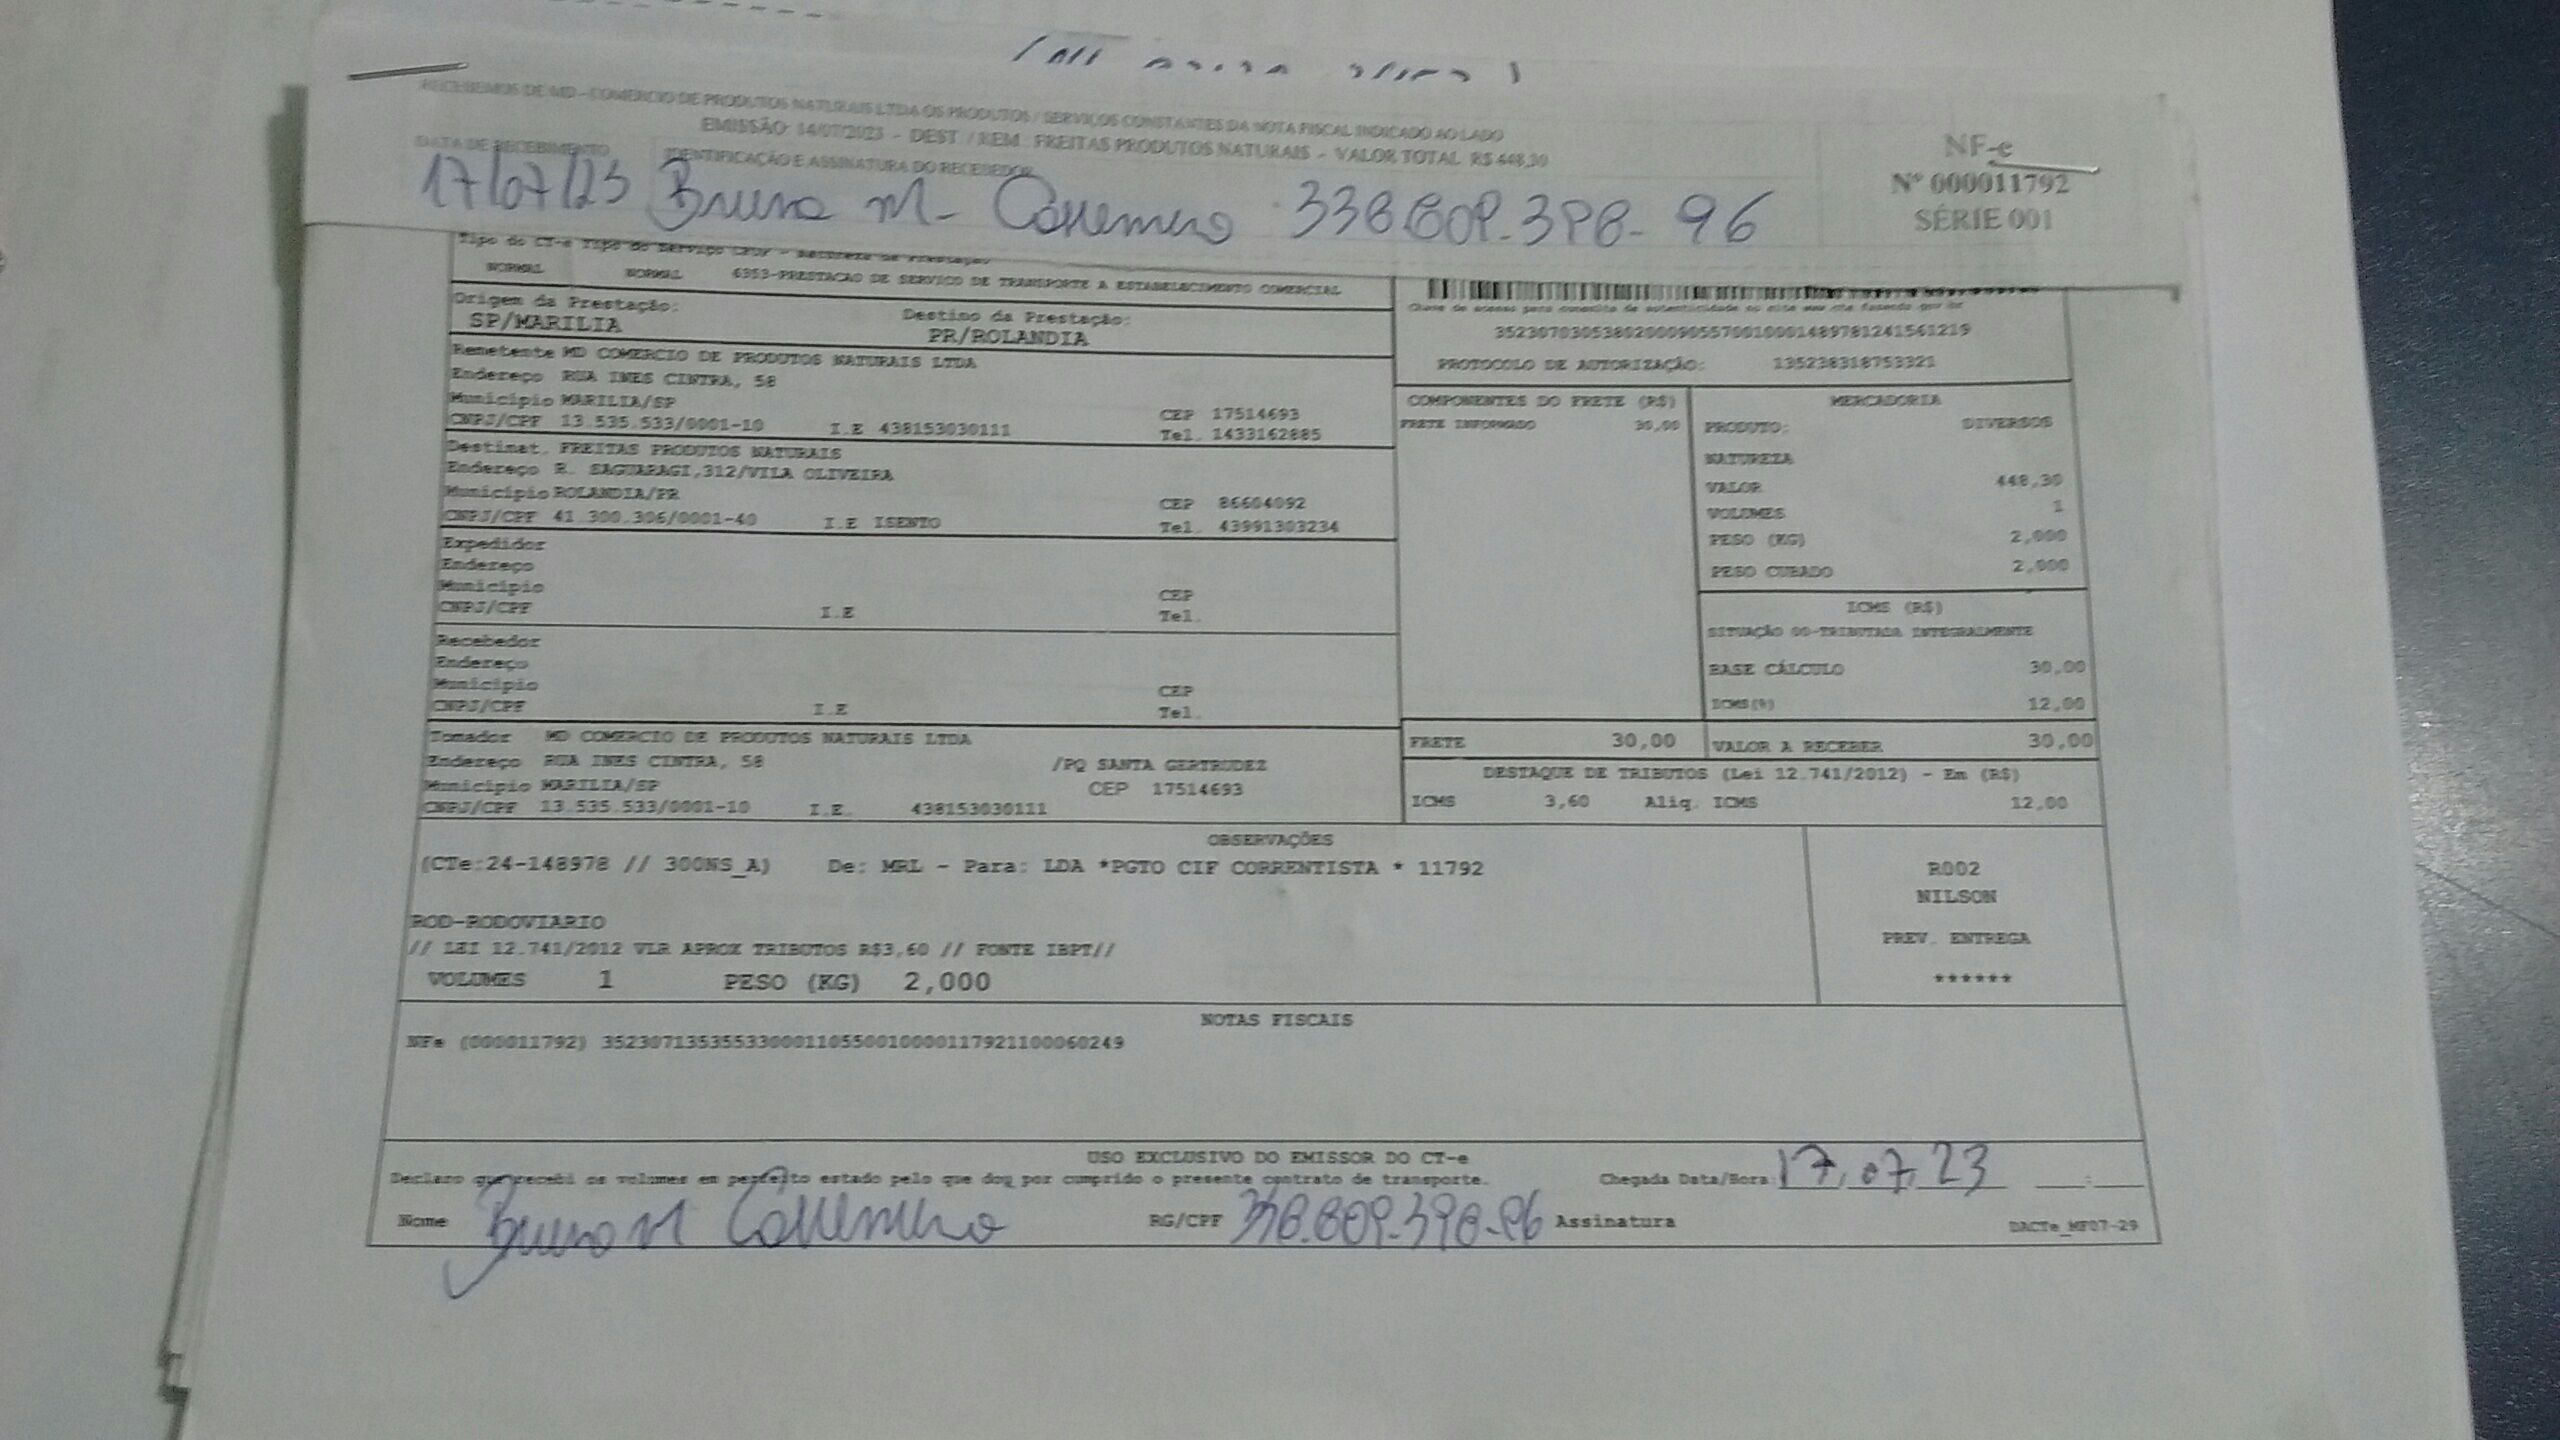 RECEBEMOS DE MD - COMERCIO DE PRODUTOS NATURAIS LTDA OS PRODUTOS / SERVIÇOS CONSTANTES DA NOTA FISCAL INDICADO AO LADO
EMISSÃO: 14/07/2023 - DEST. / REM.: FREITAS PRODUTOS NATURAIS - VALOR TOTAL: R$ 448,30
DATA DE RECEBIMENTO IDENTIFICAÇÃO E ASSINATURA DO RECEBEDOR
17/07/23 Bruno M-
NF-e
Nº 000011792
SÉRIE 001
Tipo do CT-e Tipo do Serviço CFOP - Natureza da Prestação
NORMAL NORMAL 6353-PRESTACAO DE SERVICO DE TRANSPORTE A ESTABELECIMENTO COMERCIAL
Origem da Prestação: Destino da Prestação:
SP/MARILIA PR/ROLANDIA
Remetente MD COMERCIO DE PRODUTOS NATURAIS LTDA
Endereço RUA INES CINTRA, 58
Município MARILIA/SP CEP 17514693
CNPJ/CPF 13.535.533/0001-10 I.E 438153030111 Tel. 1433162885
Destinat. FREITAS PRODUTOS NATURAIS
Endereço R. SAGUARAGI,312/VILA OLIVEIRA
Município ROLANDIA/PR CEP 86604092
CNPJ/CPF 41.300.306/0001-40 I.E ISENTO Tel. 43991303234
Expedidor
Endereço
Município CEP
CNPJ/CPF I.E Tel.
Recebedor
Endereço
Município CEP
CNPJ/CPF I.E Tel.
Tomador MD COMERCIO DE PRODUTOS NATURAIS LTDA
Endereço RUA INES CINTRA, 58 /PQ SANTA GERTRUDEZ
Município MARILIA/SP CEP 17514693
CNPJ/CPF 13.535.533/0001-10 I.E. 438153030111
Chave de acesso para consulta de autenticidade no site
35230703053802000905570010001489781241561219
PROTOCOLO DE AUTORIZAÇÃO: 135238318753321
COMPONENTES DO FRETE (R$)
FRETE INFORMADO 30,00
MERCADORIA
PRODUTO: DIVERSOS
NATUREZA
VALOR 448,30
VOLUMES 1
PESO (KG) 2,000
PESO CUBADO 2,000
ICMS (R$)
SITUAÇÃO 00-TRIBUTADA INTEGRALMENTE
BASE CÁLCULO 30,00
ICMS(%) 12,00
FRETE 30,00 VALOR A RECEBER 30,00
DESTAQUE DE TRIBUTOS (Lei 12.741/2012) - Em (R$)
ICMS 3,60 Aliq. ICMS 12,00
OBSERVAÇÕES
(CTe:24-148978 // 300NS_A) De: MRL - Para: LDA *PGTO CIF CORRENTISTA * 11792
ROD-RODOVIARIO
// LEI 12.741/2012 VLR APROX TRIBUTOS R$3,60 // FONTE IBPT//
VOLUMES 1 PESO (KG) 2,000
R002
NILSON
PREV. ENTREGA
******
NOTAS FISCAIS
NFe (000011792) 35230713535533000110550010000117921100060249
USO EXCLUSIVO DO EMISSOR DO CT-e
Declaro que recebi os volumes em perfeito estado pelo que dou por cumprido o presente contrato de transporte. Chegada Data/Hora 17,07,23 __:__
Nome Bruno M RG/CPF Assinatura DACTe_MF07-29